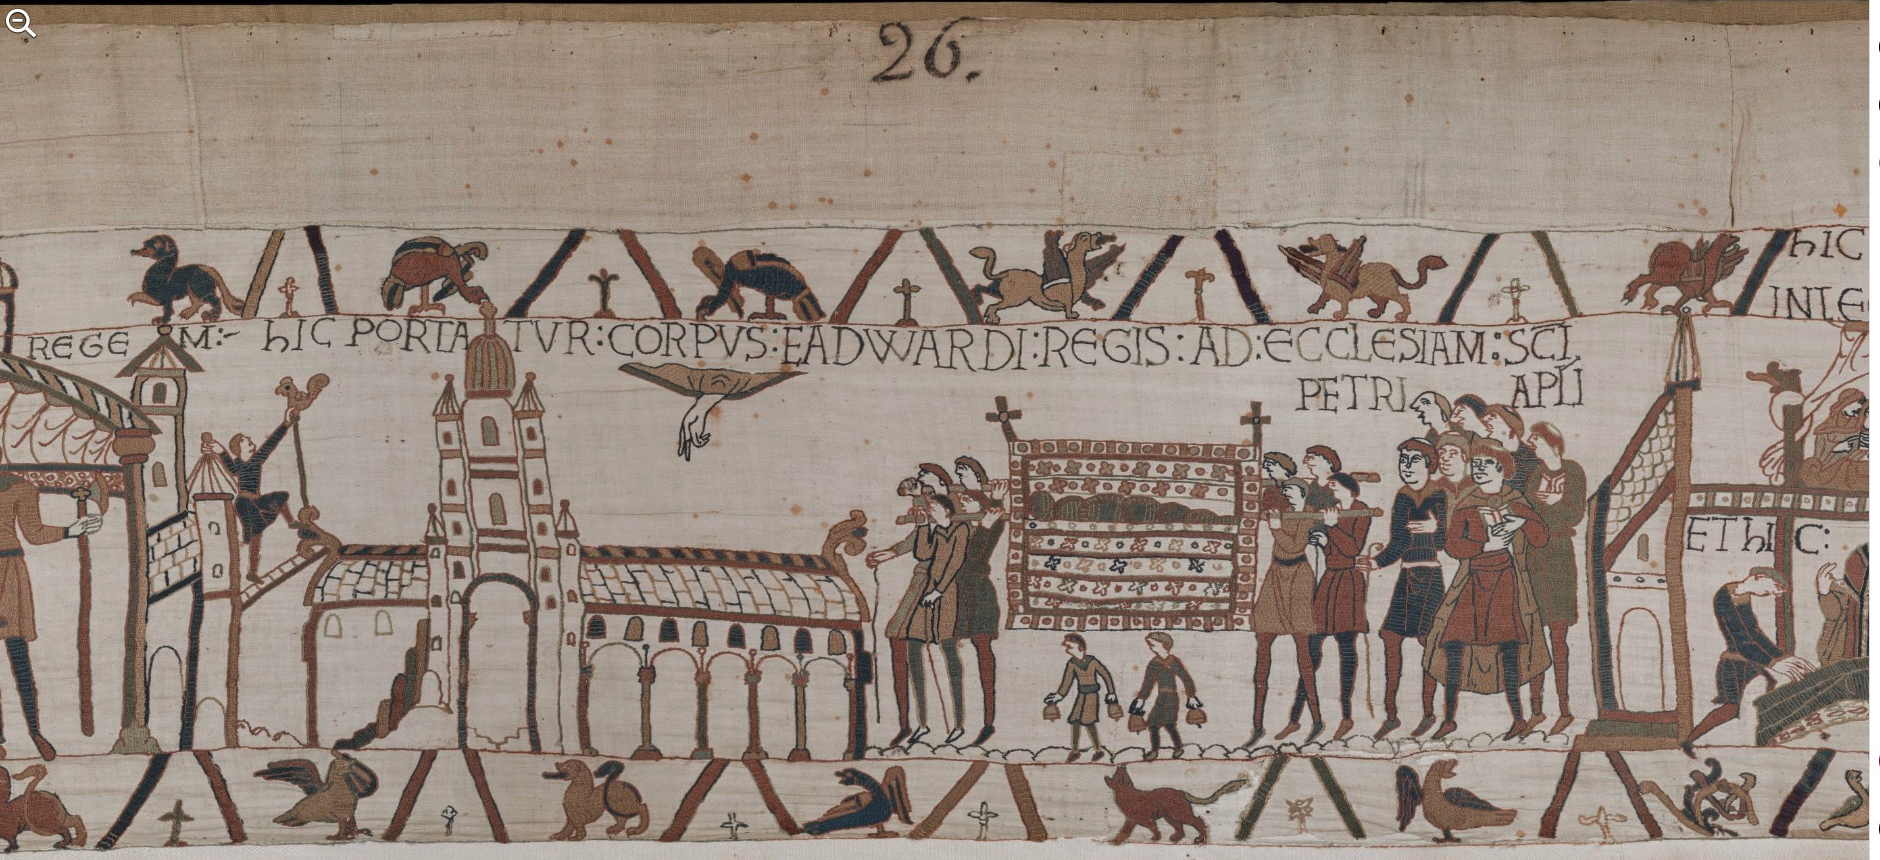 26.
REGEM:- hIC PORTATVR:CORPVS:EADWARDI:REGIS:AD:ECCLESIAM:SCI
PETRI APLI
hIC
INLE
ET hIC: